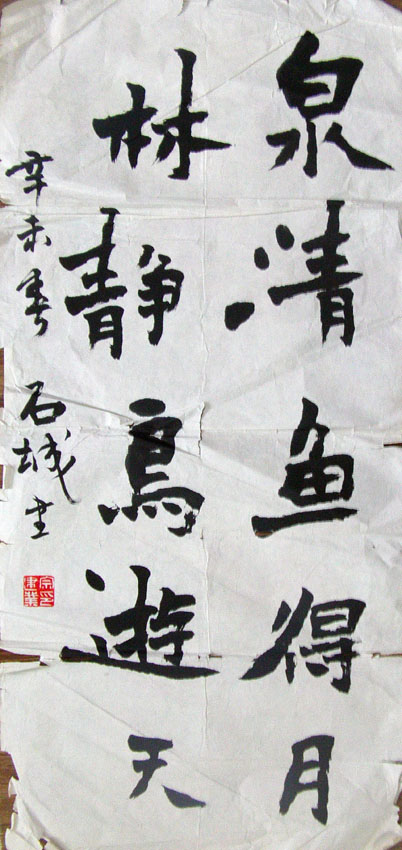 泉清鱼得月
林静鸟遊天
辛未春 石城书